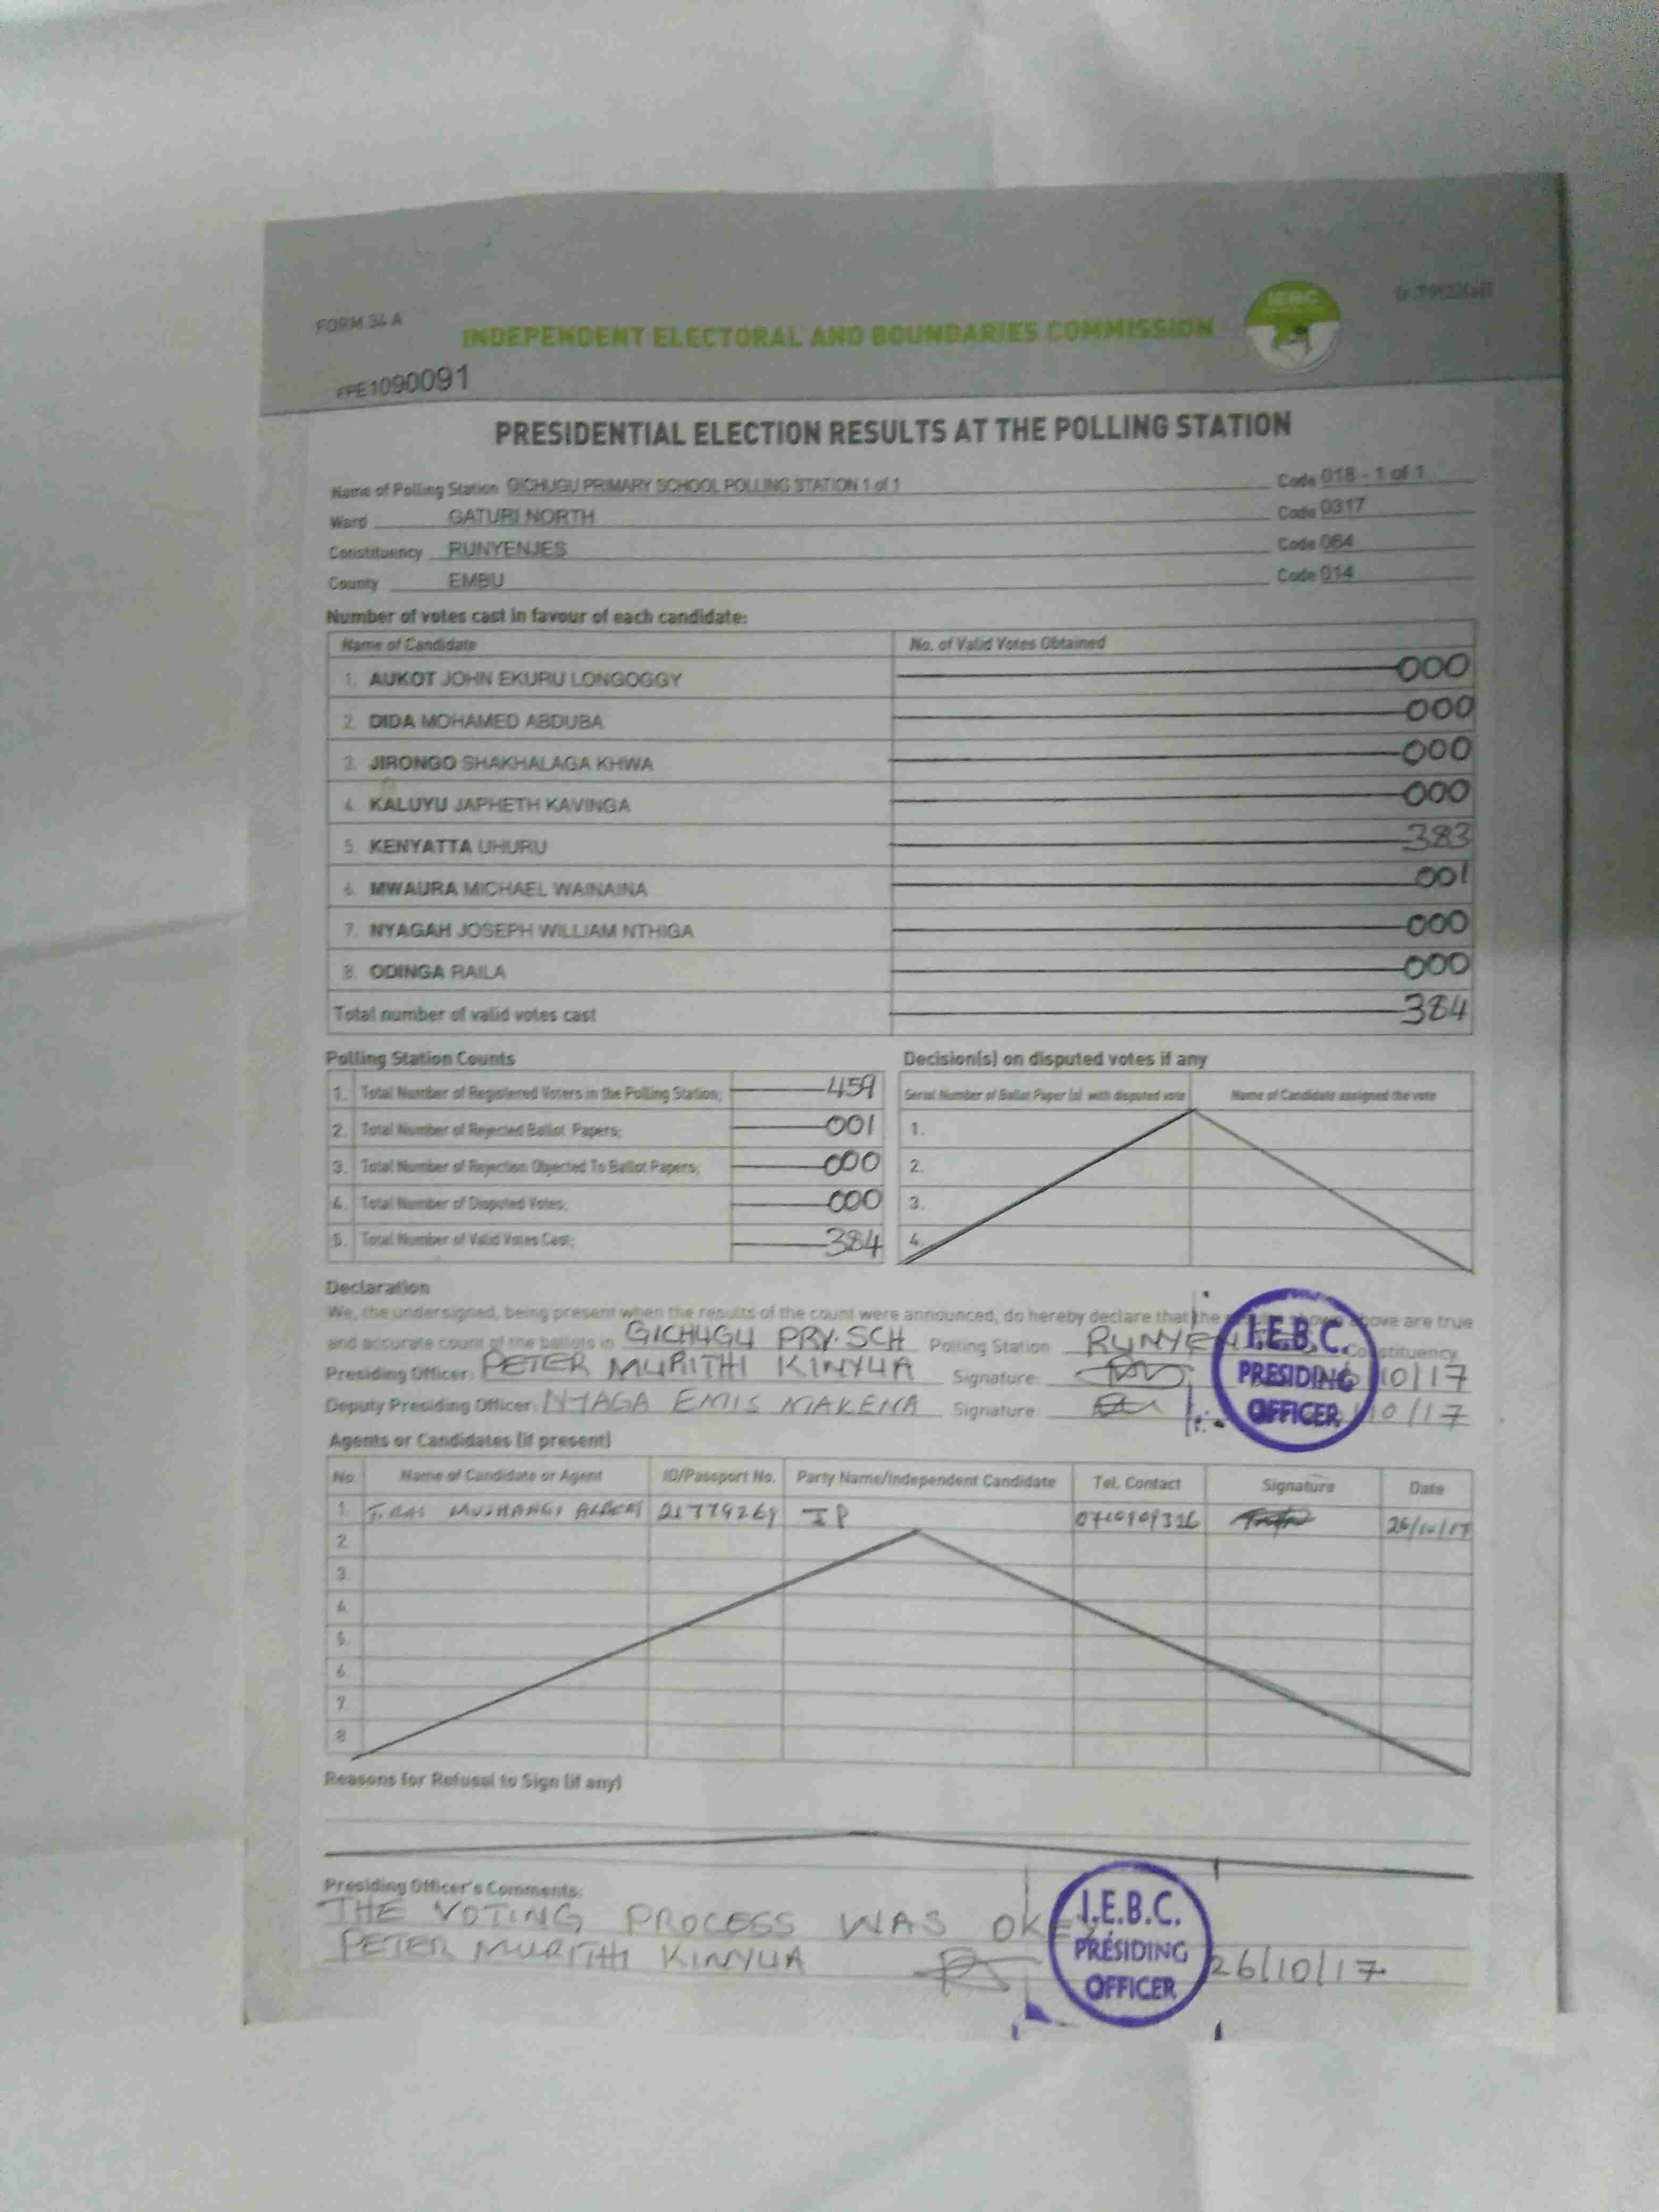 FORM 34 A
INDEPENDENT ELECTORAL AND BOUNDARIES COMMISSION
IEBC
FPE1090091
PRESIDENTIAL ELECTION RESULTS AT THE POLLING STATION
Name of Polling Station GICHUGU PRIMARY SCHOOL POLLING STATION 1 of 1 Code 018 - 1 of 1
Ward GATURI NORTH Code 0317
Constituency RUNYENJES Code 064
County EMBU Code 014
Number of votes cast in favour of each candidate:
Name of Candidate No. of Valid Votes Obtained
1. AUKOT JOHN EKURU LONGOGGY 000
2. DIDA MOHAMED ABDUBA 000
3. JIRONGO SHAKHALAGA KHWA 000
4. KALUYU JAPHETH KAVINGA 000
5. KENYATTA UHURU 383
6. MWAURA MICHAEL WAINAINA 001
7. NYAGAH JOSEPH WILLIAM NTHIGA 000
8. ODINGA RAILA 000
Total number of valid votes cast 384
Polling Station Counts
1. Total Number of Registered Voters in the Polling Station; 459
2. Total Number of Rejected Ballot Papers; 001
3. Total Number of Rejection Objected To Ballot Papers; 000
4. Total Number of Disputed Votes; 000
5. Total Number of Valid Votes Cast; 384
Decision(s) on disputed votes if any
Serial Number of Ballot Paper (s) with disputed vote Name of Candidate assigned the vote
1.
2.
3.
4.
Declaration
We, the undersigned, being present when the results of the count were announced, do hereby declare that the results shown above are true
and accurate count of the ballots in GICHUGU PRY. SCH Polling Station RUNYENJES Constituency
Presiding Officer: PETER MURITHI KINYUA Signature: 10/17
Deputy Presiding Officer: NYAGA EMIS MAKENA Signature: 10/17
I.E.B.C.
PRESIDING
OFFICER
Agents or Candidates (if present)
No. Name of Candidate or Agent ID/Passport No. Party Name/Independent Candidate Tel. Contact Signature Date
1. ALBERT JP 26/10/17
2.
3.
4.
5.
6.
7.
8.
Reasons for Refusal to Sign (if any)
Presiding Officer's Comments:
THE VOTING PROCESS WAS OKEY.
PETER MURITHI KINYUA 26/10/17
I.E.B.C.
PRESIDING
OFFICER